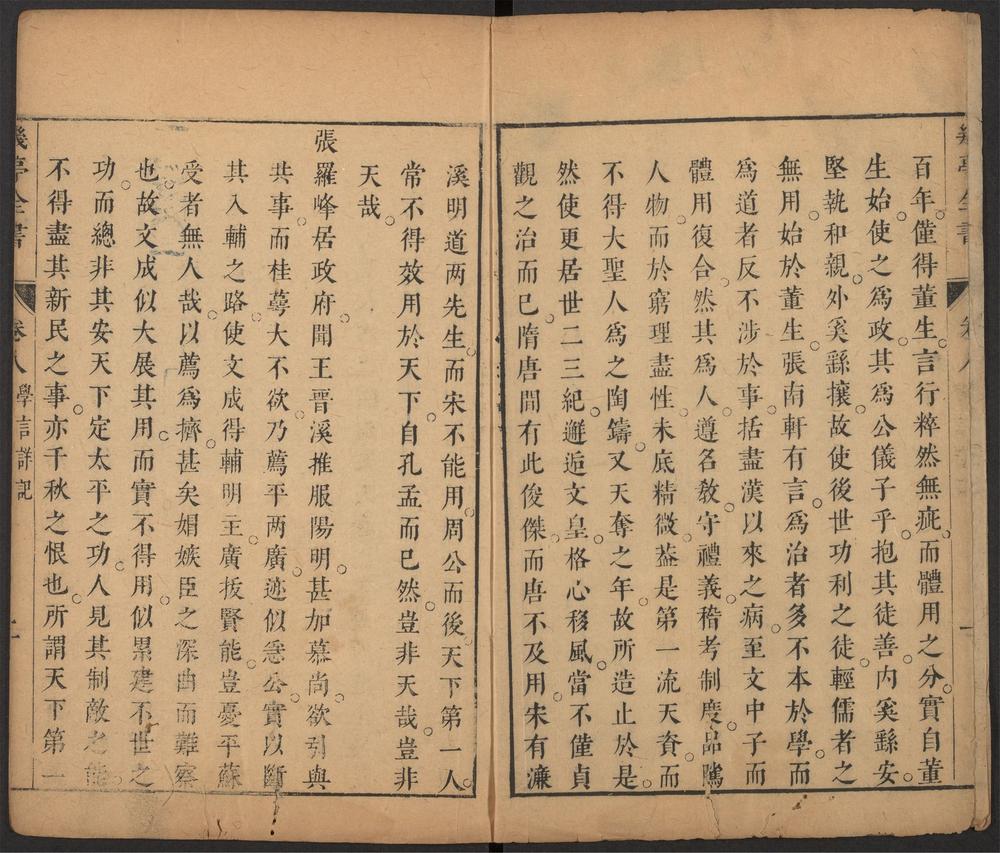 百年僅得董生言行粹然無疵而體用之分實自董
生始使之爲政其爲公儀子乎抱其徒善内奚繇安
堅執和親外奚繇攘故使後世功利之徒輕儒者之
無用始於董生張南軒有言爲治者多不本於學而
爲道者反不涉於事括盡漢以來之病至文中子而
體用復合然其爲人遵名敎守禮義稽考制度品騭
人物而於窮理盡性未底精微葢是第一流天資而
不得大聖人爲之陶鑄又天奪之年故所造止於是
然使更居世二三紀邂逅文皇格心移風當不僅貞
觀之治而已隋唐間有此俊傑而唐不及用宋有濂
幾亭全書
卷八
一
溪明道两先生而宋不能用周公而後天下第一人
常不得效用於天下自孔孟而已然豈非天哉豈非
天哉
張羅峰居政府聞王晋溪推服陽明甚加慕尚欲引與
共事而桂蕚大不欲乃薦平两廣迹似急公實以斷
其入輔之路使文成得輔明主廣拔賢能豈憂平蘇
受者無人哉以薦爲擠甚矣娼嫉臣之深曲而難察
也故文成似大展其用而實不得用似累建不世之
功而總非其安天下定太平之功人見其制敵之能
不得盡其新民之事亦千秋之恨也所謂天下第一
幾亭全書
卷八
學言詳記
二